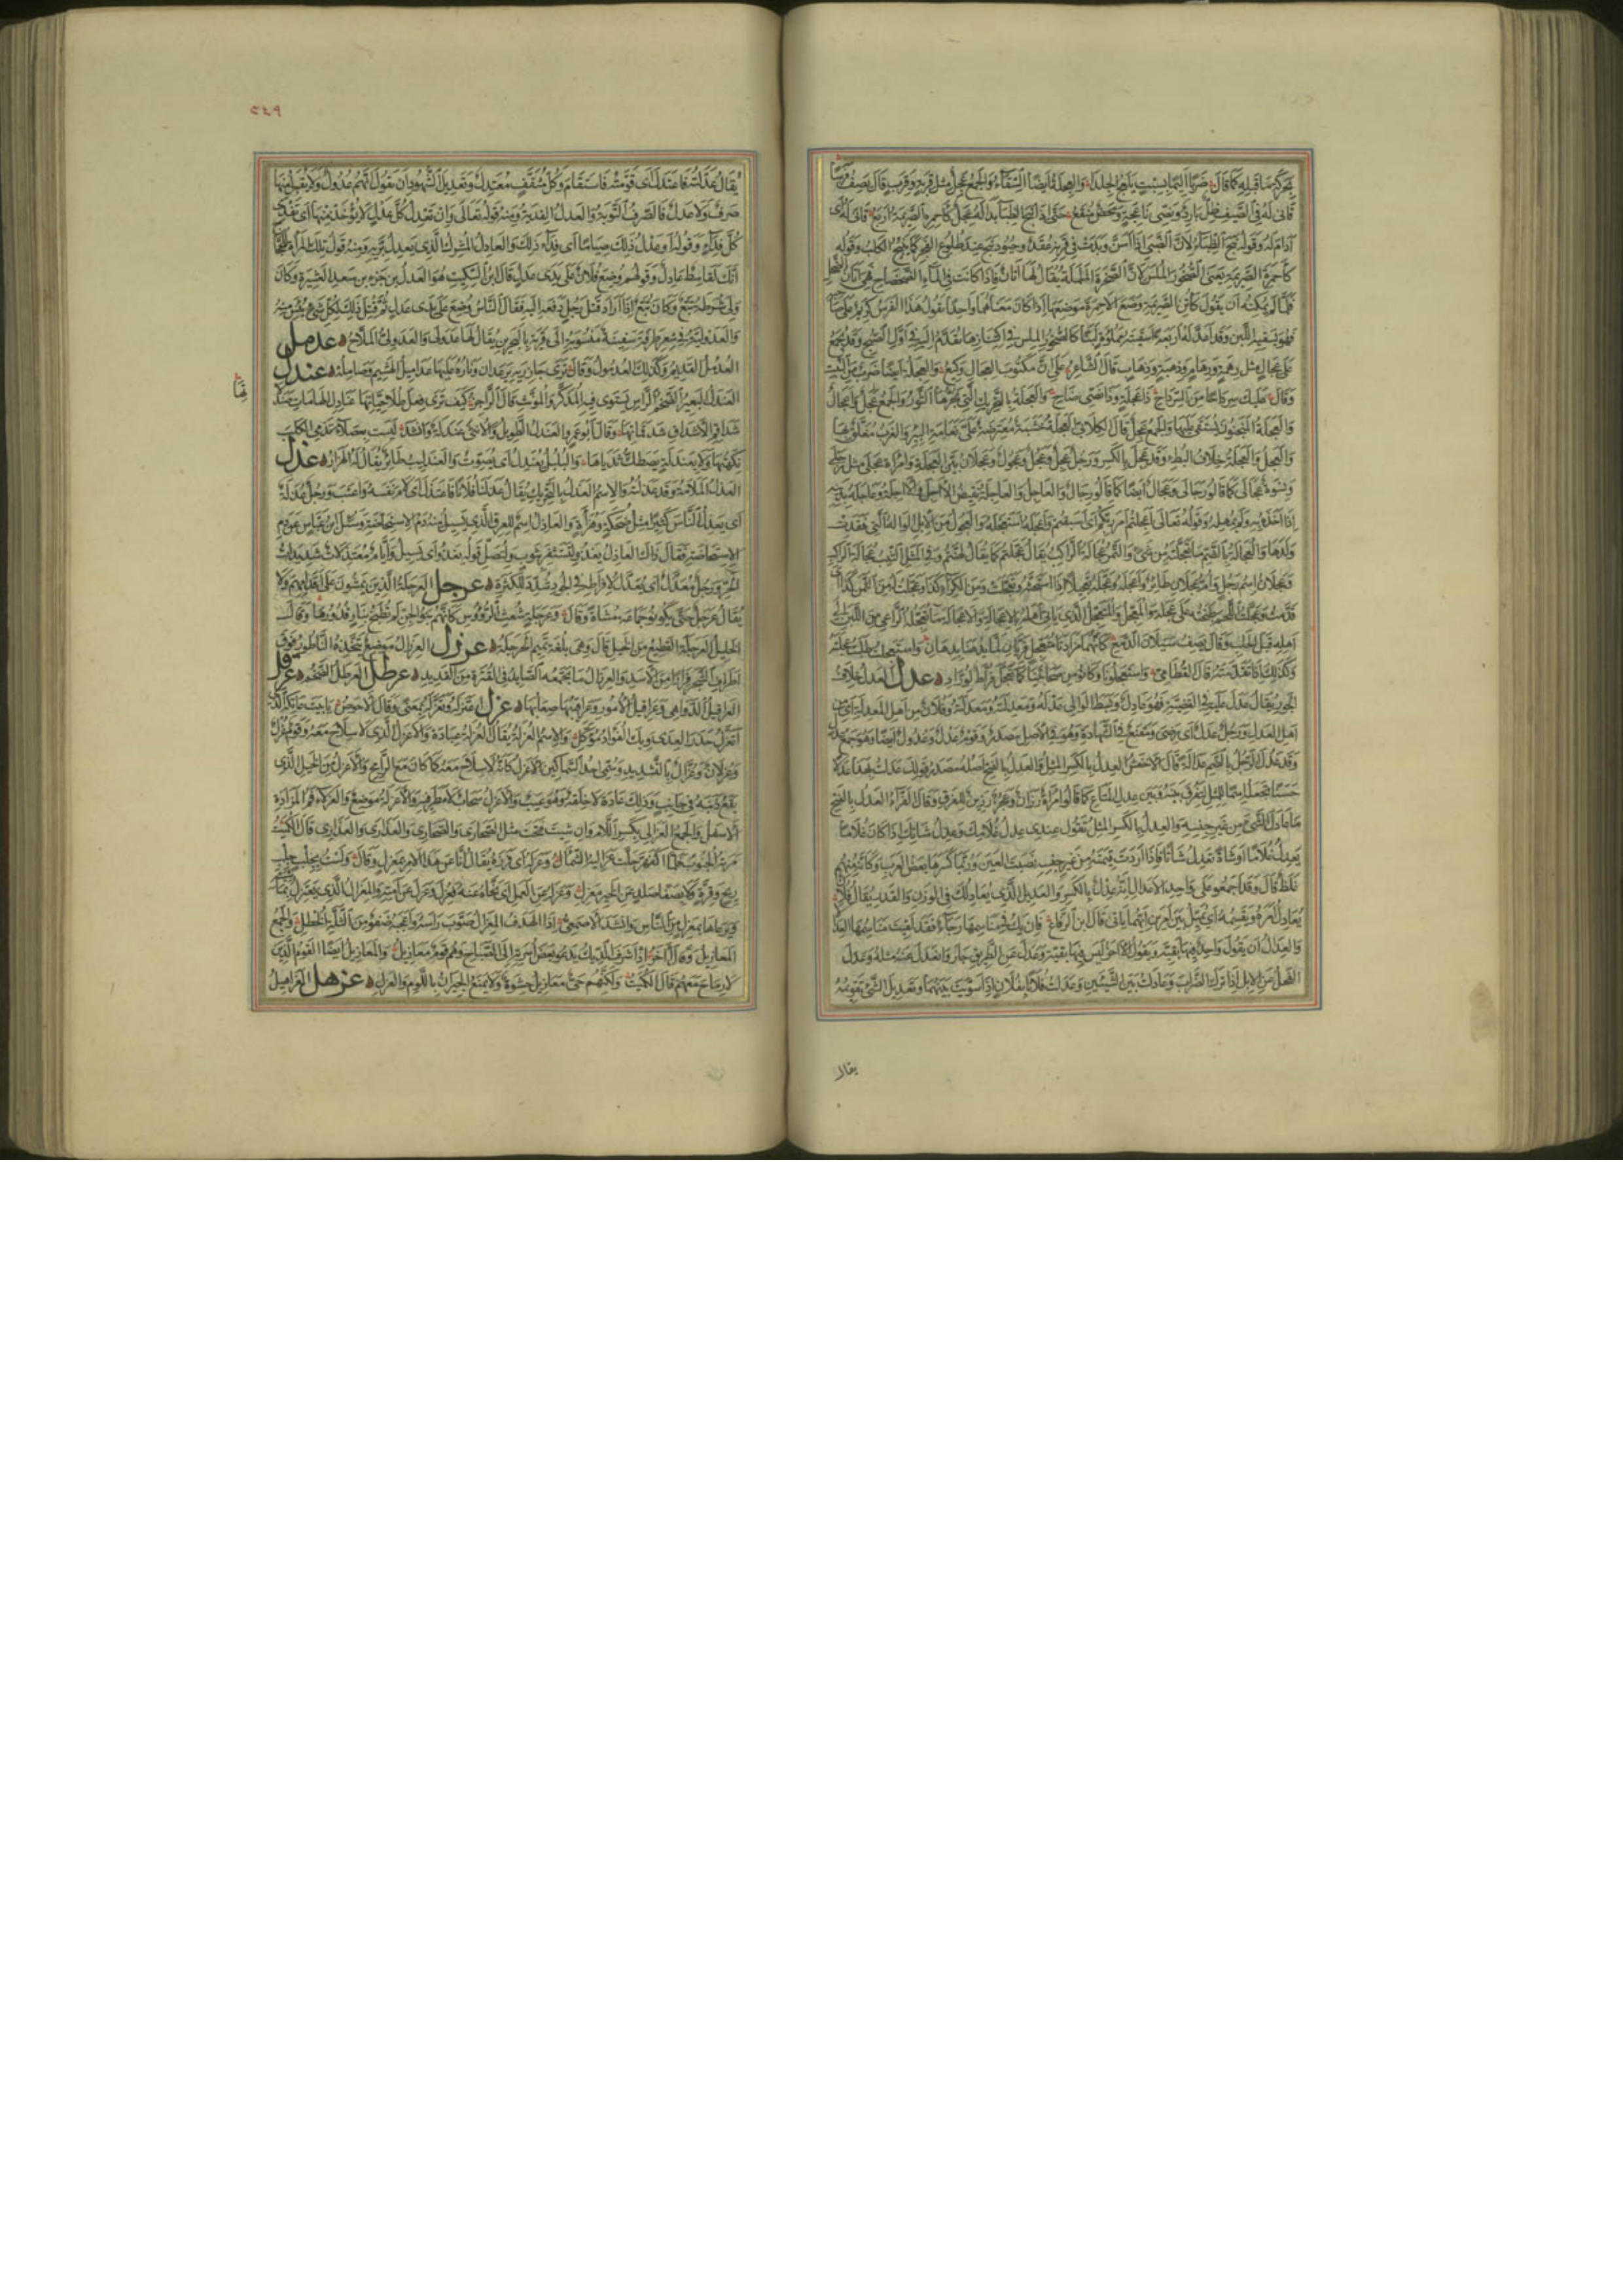 بحركة ما قبله كما قال ضربا اليما بسبت يلعج الجلدا والعجلة ايضا السقاء والجمع عجل مثل قربة وقرب قال يصف فرسا
قانى له في الصيف ظل بارد ونصى ناعجة ومحض منقع حتى اذا نبح الظباء بدا له عجل كاحمرة الصريمة اربع قانى له اى
دام له وقوله نبح الظباء لان الظبى اذا اسن وبدت في قرنه عقد وحيود نبح عند طلوع الفجر كما ينبح الكلب وقوله
كاحمرة الصريمة يعنى الصخور الملس لان الصخرة الململمة يقال لها اتان فاذا كانت في الماء الضحضاح فهى اتان الضحل
فلما لم يمكنه ان يقول كاتن الصريمة وضع الاحمرة موضعها اذ كان معناهما واحدا يقول هذا الفرس كريم على صاحبه
فهو يسقيه اللبن وقد اعد له اربعة اسقية مملوة لبنا كالصخور الملس في اكتنازها تقدم اليه في اول الصبح وقد تجمع
على عجال مثل رهمة ورهام وذهبة وذهاب قال الشاعر على ان مكتوب العجال وكيع والعجلة ايضا ضرب من النبت
وقال عليك سرداحا من السرداح ذا عجلة وذا نصى ضاح والعجلة بالتحريك التى يجرها الثور والجمع عجل واعجال
والعجلة المنجنون يستقى عليها والجمع عجل قال الكلابى العجلة خشبة معترضة على نعامة البئر والغرب معلق بها
والعجل والعجلة خلاف البطء وقد عجل بالكسر ورجل عجل وعجل وعجول وعجلان بين العجلة وامراة عجلى مثل رجلى
ونسوة عجالى كما قالوا رجالى وعجال ايضا كما قالوا رجال والعاجل والعاجلة نقيض الآجل والآجلة وعاجله بذنبه
اذا اخذه به ولم يمهله وقوله تعالى اعجلتم امر ربكم اى اسبقتم واعجله استعجله والعجول من الابل الواله التى فقدت
ولدها والعجالة بالضم ما تعجلته من شىء والتمر عجالة الراكب يقال عجلتم كما يقال لهنتم وفي المثل الثيب عجالة الراكب
وعجلان اسم رجل وام عجلان طائر واعجله وعجله تعجيلا اذا استحثه وتعجلت من الكراء كذا وعجلت له من الثمن كذا اى
قدمت وعجلت اللحم طبخته على عجلة والمعجل والمتعجل الذى ياتى اهله بالاعجالة والاعجالة ما يتعجله الراعى من اللبن الى
اهله قبل الحلب وقال يصف سيلان الدمع كانهما مزادتا متعجل فريان لما يدهنا بدهان واستعجلته طلبت عجلته
وكذلك اذا تقدمته قال القطامى واستعجلونا وكانوا من صحابتنا كما تعجل فراط لوراد عدل العدل خلاف
الجور يقال عدل عليه في القضية فهو عادل وبسط الوالى عدله ومعدلته ومعدلته وفلان من اهل المعدلة اى من
اهل العدل ورجل عدل اى رضى ومقنع في الشهادة وهو في الاصل مصدر وقوم عدل وعدول ايضا وهو جمع عدل
وقد عدل الرجل بالضم عدالة قال الاخفش العدل بالكسر المثل والعدل بالفتح اصله مصدر قولك عدلت بهذا عدلا
حسنا تجعله اسما للمثل لتفرق بينه وبين عدل المتاع كما قالوا امراة رزان وعجز رزين للفرق وقال الفراء العدل بالفتح
ما عادل الشىء من غير جنسه والعدل بالكسر المثل تقول عندى عدل غلامك وعدل شاتك اذا كان غلاما
يعدل غلاما او شاة تعدل شاة فاذا اردت قيمته من غير جنسه نصبت العين وربما كسرها بعض العرب وكانه منهم
غلط قال وقد اجمعوا على واحد الاعدال انه عدل بالكسر والعديل الذى يعادلك في الوزن والقدر يقال فلان
يعادل امره ويقسمه اى يميل بين امرين ايهما ياتى قال ابن الرقاع فان يك في مناسمها رجاء فقد لقيت مناسمها العدالا
والعدال ان يقول واحد فيها بقية ويقول الآخر ليس فيها بقية وعدل عن الطريق جار وانعدل عنه مثله وعدل
الفحل عن الابل اذا ترك الضراب وعادلت بين الشيئين وعدلت فلانا بفلان اذا سويت بينهما وتعديل الشىء تقويمه
يقال
٢٤٩
يقال عدلته فاعتدل اى قومته فاستقام وكل مثقف معتدل وتعديل الشهود ان تقول انهم عدول ولا يقبل منها
صرف ولا عدل فالصرف التوبة والعدل الفدية ومنه قوله تعالى وان تعدل كل عدل لا يؤخذ منها اى تفدى
كل فداء وقوله او عدل ذلك صياما اى فداء ذلك والعادل المشرك الذى يعدل بربه ومنه قول تلك المراة للحجاج
انك لقاسط عادل وقولهم وضع فلان على يدى عدل قال ابن السكيت هو العدل بن جزء بن سعد العشيرة وكان
ولى شرط تبع وكان تبع اذا اراد قتل رجل دفعه اليه فقال الناس وضع على يدى عدل ثم قيل ذلك لكل شىء يئس منه
والعدولية في شعر طرفة سفينة منسوبة الى قرية بالبحرين يقال لها عدولى والعدولى الملاح عدمل
العدمل القديم وكذلك العدمول وقال ترى جازريه يرعدان وناره عليها عداميل الهشيم وصامله عندل
العندل البعير الضخم الراس يستوى فيه المذكر والمونث قال الراجز كيف ترى فعل طلاحياتها عنادل الهامات
شداقم الاشداق شدقماتها وقال ابو عمرو العندل الطويل والانثى عندلة وانشد ليست بعصلاء تذمى الكلب
نكهتها ولا بعندلة يصطك ثدياها والبلبل يعندل اى يصوت والعندليب طائر يقال له الهزار عذل
العذل الملامة وقد عذلته والاسم العذل بالتحريك يقال عذلنا فلانا فاعتذل اى لام نفسه واعتب ورجل عذلة
اى يعذل الناس كثيرا مثل ضحكة وهزاة والعاذل اسم للعرق الذى يسيل منه دم الاستحاضة وسئل ابن عباس عن دم
الاستحاضة فقال ذاك العاذل يغذو لتستثفر بثوب ولتصل قوله يغذو اى يسيل وايام معتذلات شديدات
الحر ورجل معذل اى يعذل لافراطه في الجود شدد للكثرة عرجل العرجلة الذين يمشون على اقدامهم ولا
يقال عرجلة حتى يكونوا جماعة مشاة وقال وعرجلة شعث الرؤوس كانهم بنو الجن لم تطبخ بنار قدورها وقال
الخليل العرجلة القطيع من الخيل قال وهى بلغة تميم الحرجلة عرزل العرزال موضع يتخذه الناطور فوق
اطراف الشجر فرارا من الاسد والعرزال ما يجمعه الصائد في القترة من القديد عرطل العرطل الضخم عرقل
العراقيل الدواهى وعراقيل الامور وعراقيبها صعابها عزل اعتزله وتعزله بمعنى وقال الاحوص يا بيت عاتكة الذى
اتعزل حذر العدى وبك الفواد موكل والاسم العزلة يقال العزلة عبادة والاعزل الذى لا سلاح معه وقوم عزل
وعزلان وعزل بالتشديد وسمى احد السماكين الاعزل كانه لا سلاح معه كما كان مع الرامح والاعزل من الخيل الذى
يقع ذنبه في جانب وذلك عادة لا خلقة وهو عيب والاعزل سحاب لا مطر فيه والاعزلة موضع والعزلاء فم المزادة
الاسفل والجمع العزالى بكسر اللام وان شئت فتحت مثل الصحارى والصحارى والعذارى والعذارى قال الكميت
مرته الجنوب فلما اكفهر حلت عزاليه الشمال وعزله اى افرزه يقال انا عن هذا الامر بمعزل وقال ولست بجلب جلب
ريح وقرة ولا بصفا صلد عن الخير معزل وعزله عن العمل اى نحاه عنه فعزل وعزل عن امته والمعزال الذى يعتزل بماشيته
ويرعاها بمعزل من الناس وانشد الاصمعى اذا الهدف المعزال صوب راسه واعجبه ضفو من الثلة الخطل والجمع
المعازيل وقال آخر اذ اشرف الديك يدعو بعض اسرته الى الصباح وهم قوم معازيل والمعازيل ايضا القوم الذين
لا رماح معهم قال الكميت ولكنهم حى معازيل حشوة ولا يمنع الجيران باللوم والعزل عزهل العزاهيل